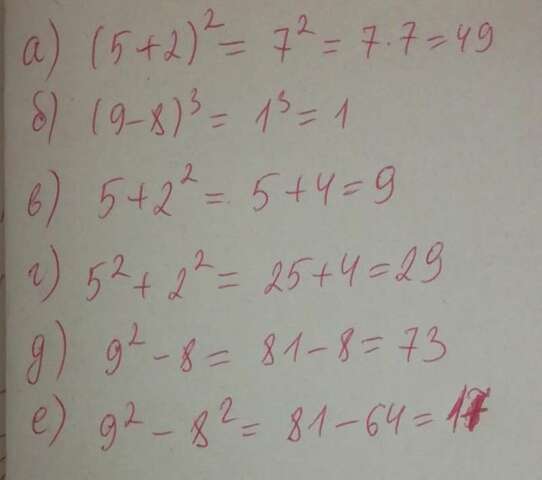 а) (5+2)² = 7² = 7·7 = 49
б) (9-8)³ = 1³ = 1
в) 5+2² = 5+4 = 9
г) 5² + 2² = 25+4 = 29
д) 9² - 8 = 81 - 8 = 73
е) 9² - 8² = 81 - 64 = 17